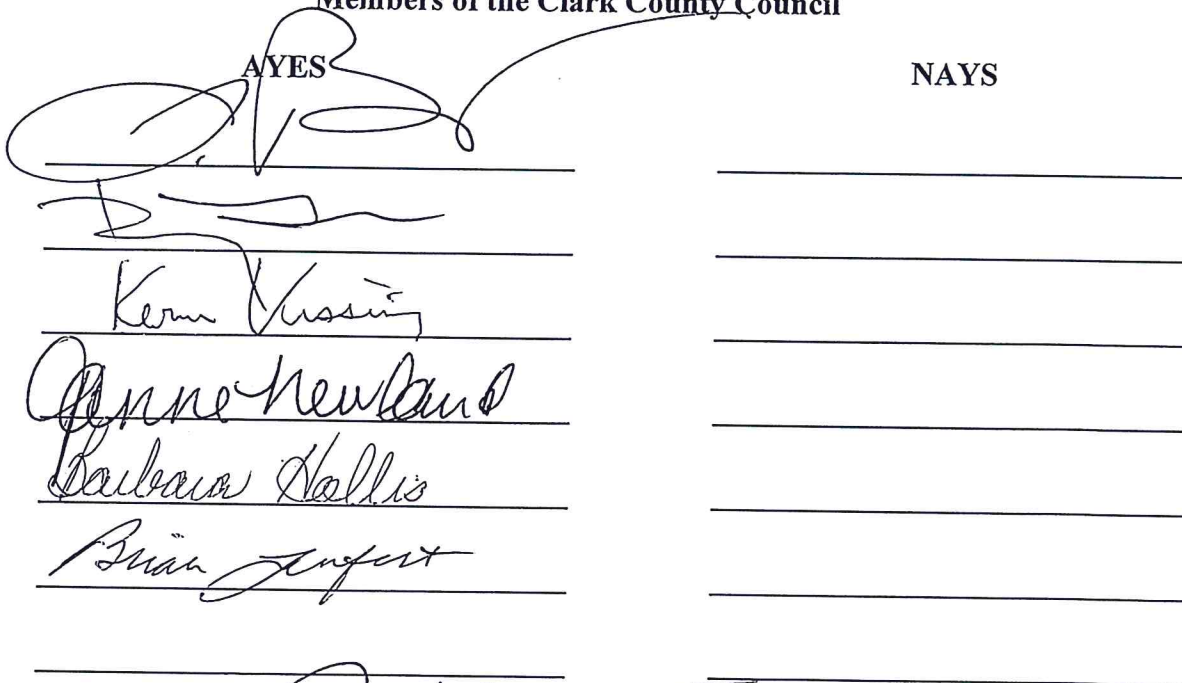 Members of the Clark County Council
AYES NAYS
Kevin Vissing
Anne Newland
Barbara Hollis
Brian Lenfert